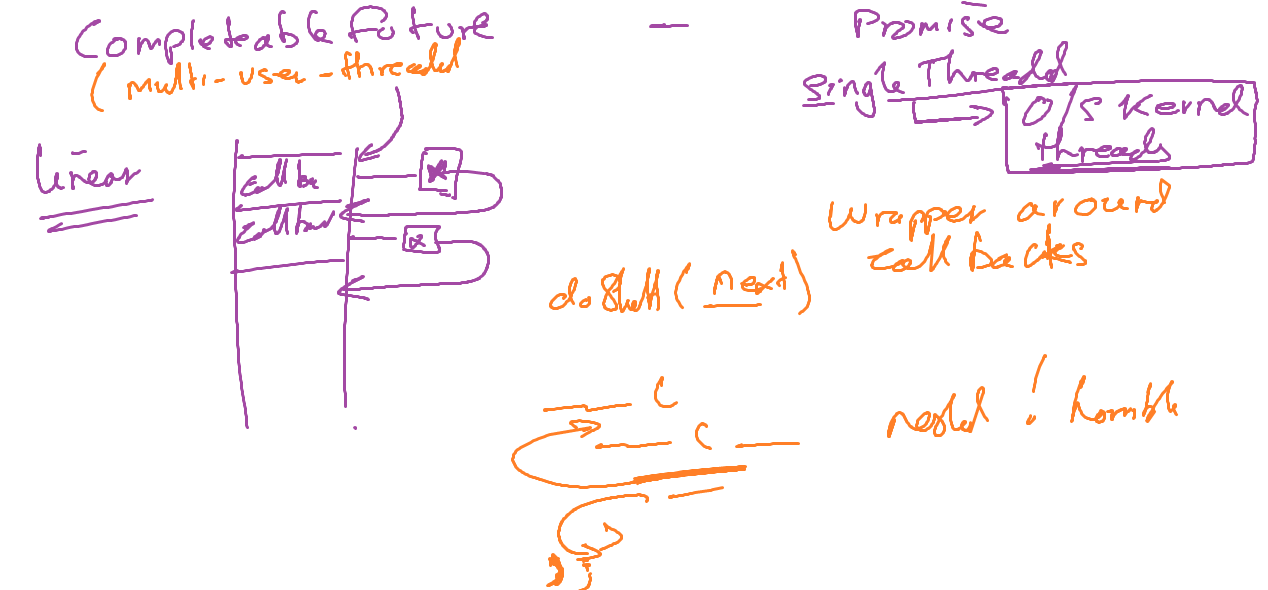 Completeable Future — Promise
(multi-user-threaded
Single Threadd
O/S Kernel
threads
linear
call ba
call back
Wrapper around
call backs
do Stuff (next)
C
C
nested ! horrible